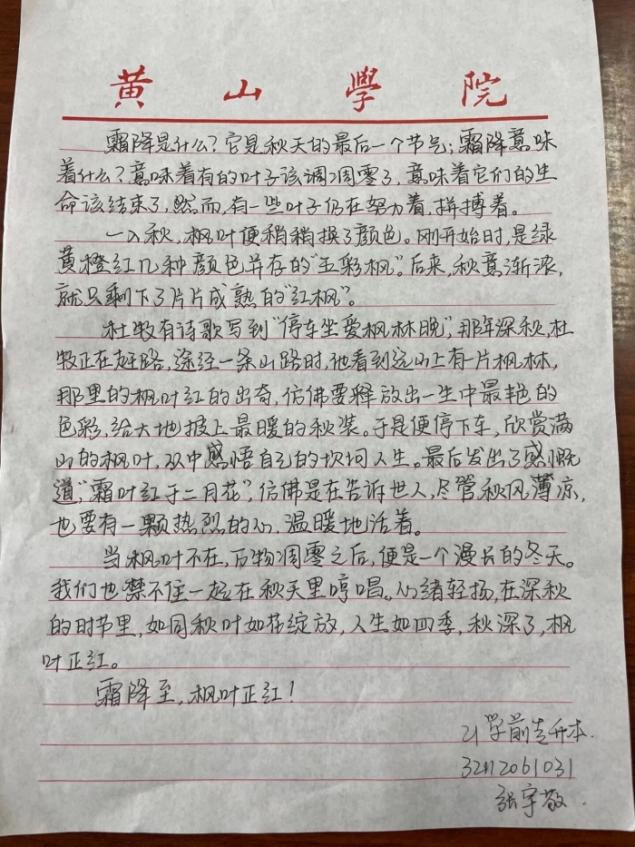 黄山學院
霜降是什么？它是秋天的最后一个节气；霜降意味
着什么？意味着有的叶子该调凋零了，意味着它们的生
命该结束了，然而，有一些叶子仍在努力着，拼搏着。
一入秋，枫叶便稍稍换了颜色。刚开始时，是绿
黄橙红几种颜色并存的“五彩枫”。后来，秋意渐浓，
就只剩下了片片成熟的“红枫”。
杜牧有诗歌写到“停车坐爱枫林晚”，那年深秋，杜
牧正在赶路，途经一条山路时，他看到远山上有一片枫林，
那里的枫叶红的出奇，仿佛要释放出一生中最艳的
色彩，给大地披上最暖的秋装。于是便停下车，欣赏满
山的枫叶，从中感悟自己的坎坷人生。最后发出了感慨
道，“霜叶红于二月花”，仿佛是在告诉世人，尽管秋风薄凉，
也要有一颗热烈的心，温暖地活着。
当枫叶不在，万物凋零之后，便是一个漫长的冬天。
我们也禁不住一起在秋天里哼唱。心绪轻扬，在深秋
的时节里，如同秋叶如花绽放，人生如四季，秋深了，枫
叶正红。
霜降至，枫叶正红！
21学前专升本.
32112061031
张宇敬.